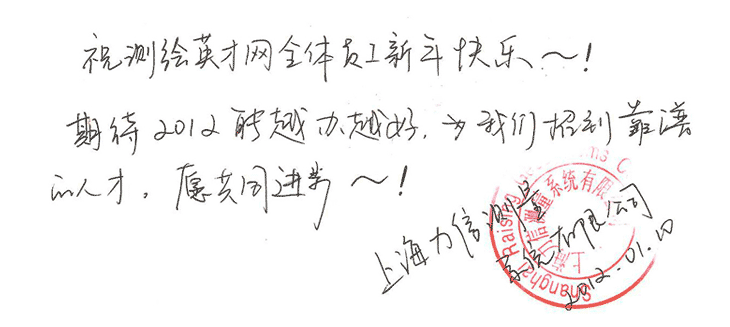 祝测绘英才网全体员工新年快乐～！
期待2012聘越办越好，为我们招到靠谱
的人才，愿共同进步～！
上海力信测量
系统有限公司
2012.01.10
Shanghai Raising
上海力信测量系统有限